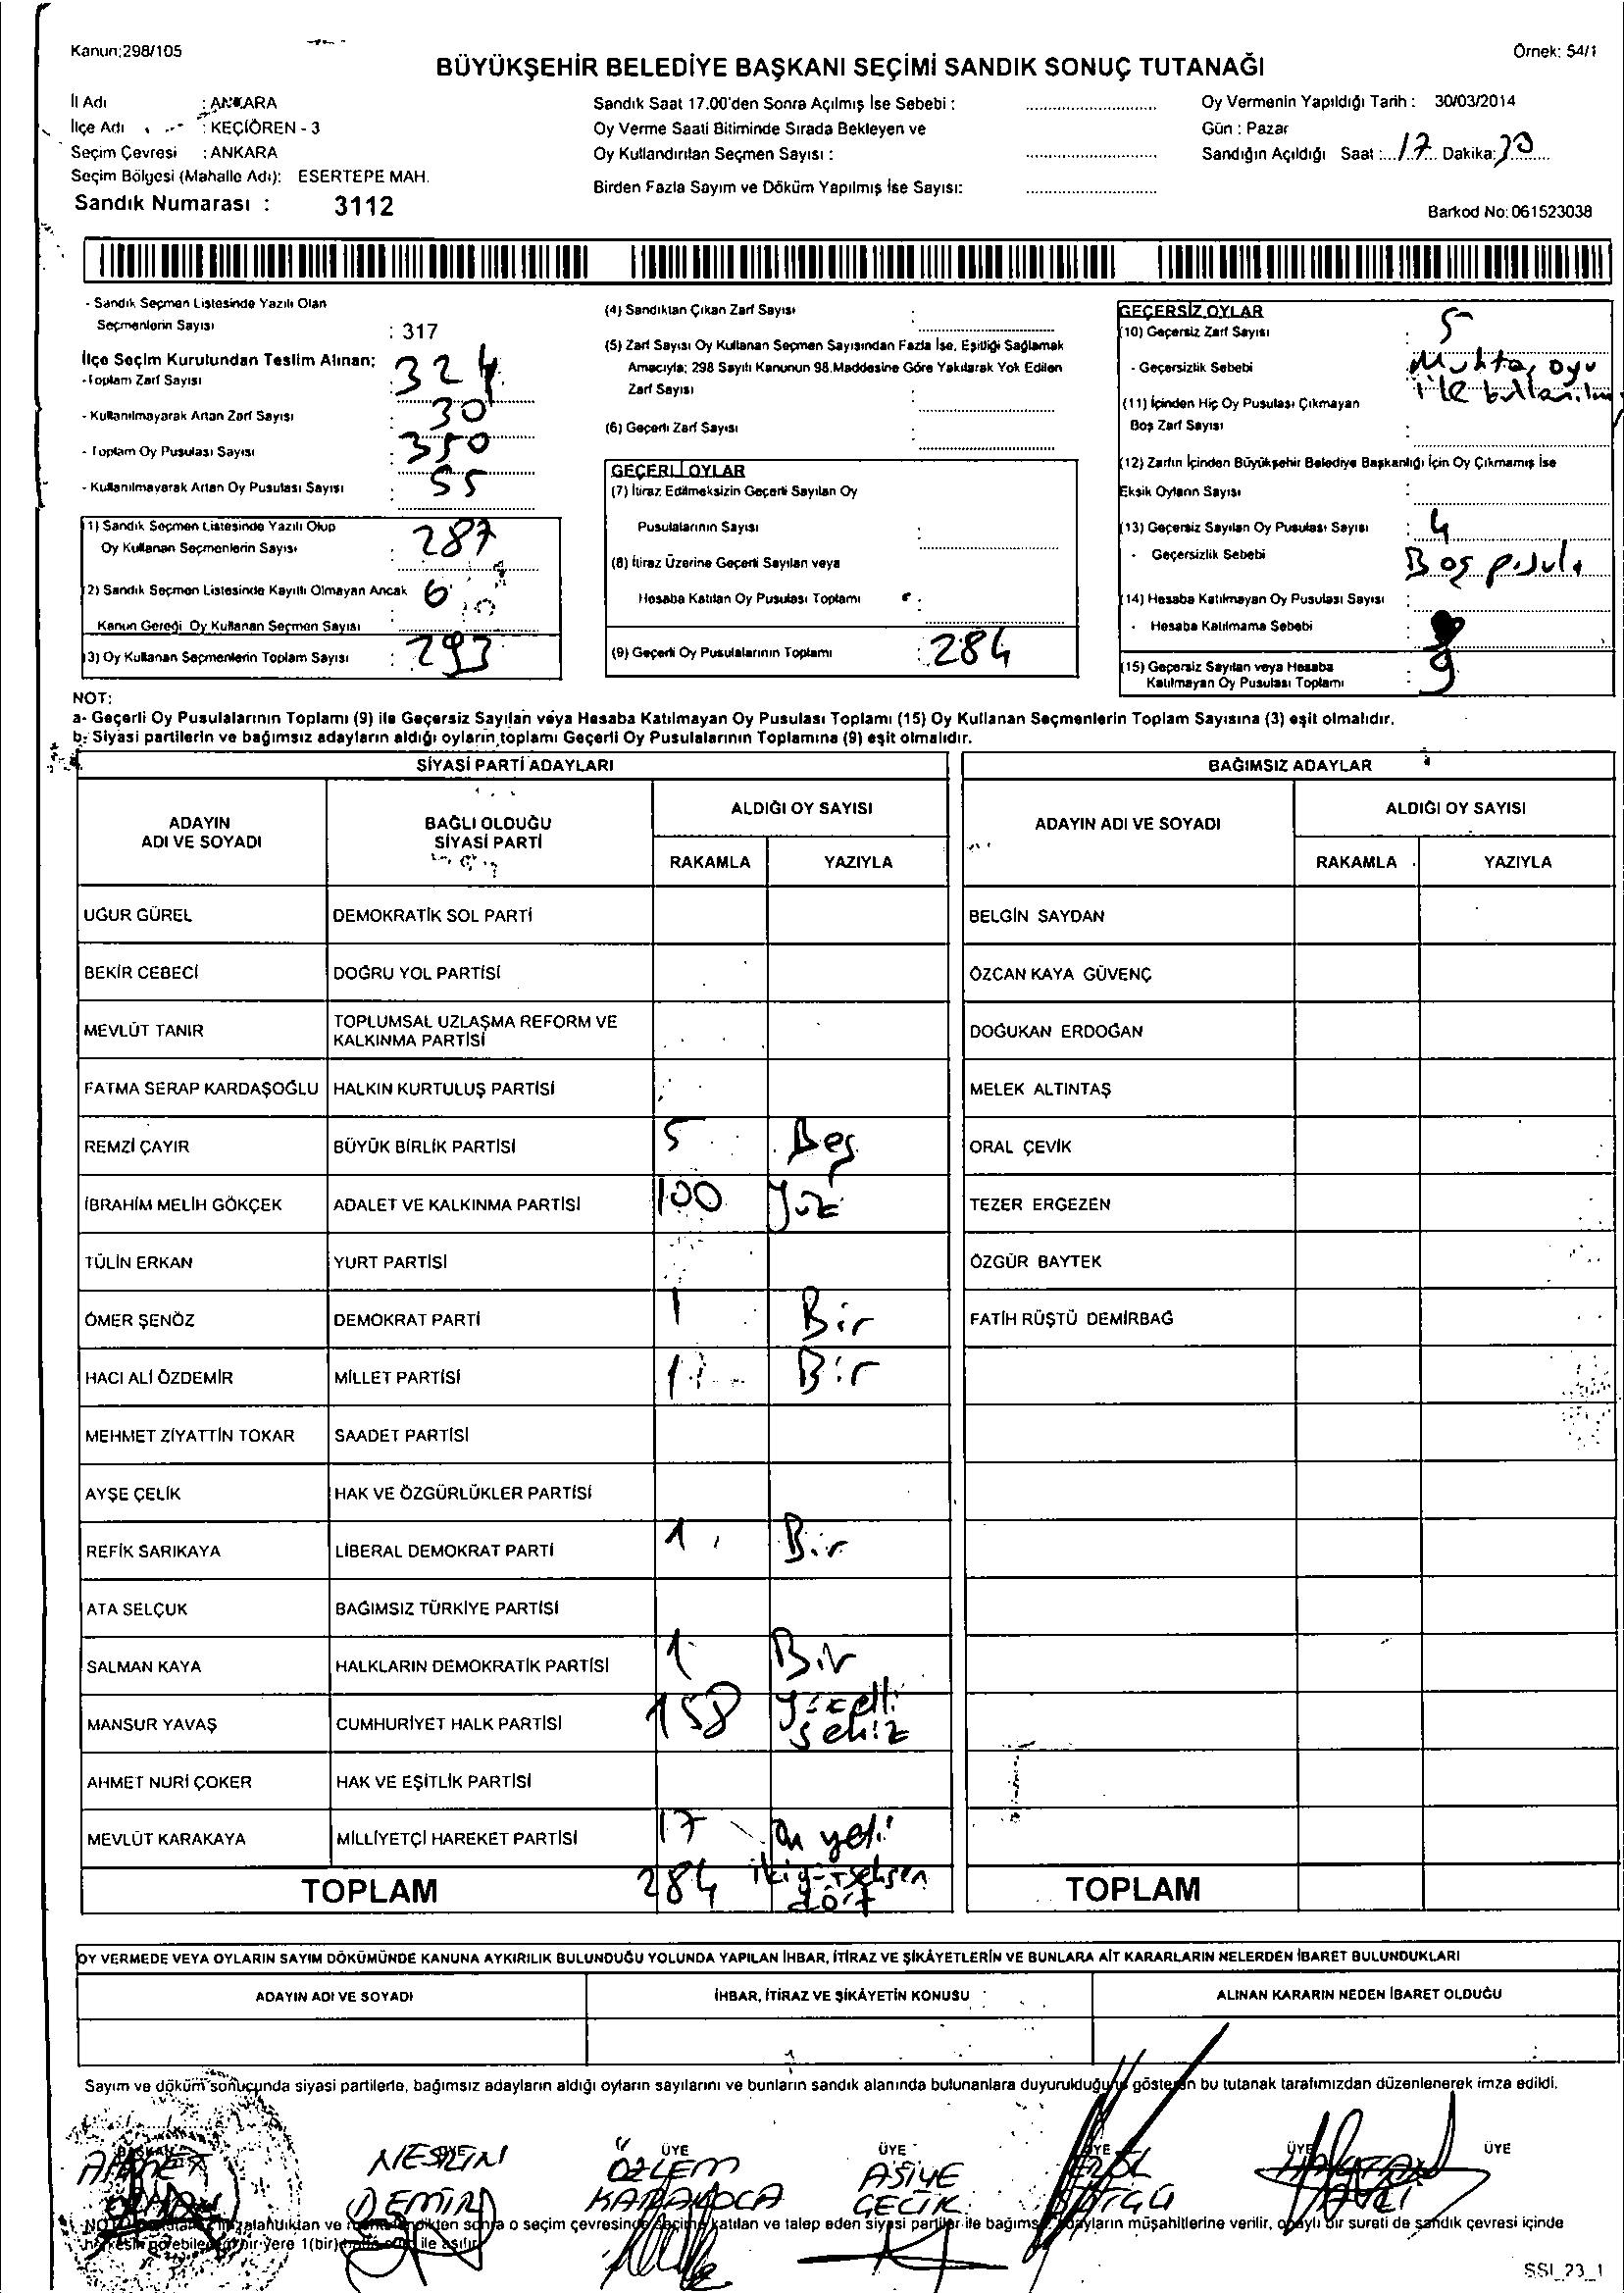 Kanun:298/105
Örnek: 54/1
BÜYÜKŞEHİR BELEDİYE BAŞKANI SEÇİMİ SANDIK SONUÇ TUTANAĞI
İl Adı : ANKARA
İlçe Adı : KEÇİÖREN - 3
Seçim Çevresi : ANKARA
Seçim Bölgesi (Mahalle Adı): ESERTEPE MAH.
Sandık Numarası : 3112
Sandık Saat 17.00'den Sonra Açılmış İse Sebebi :
Oy Verme Saati Bitiminde Sırada Bekleyen ve
Oy Kullandırılan Seçmen Sayısı :
Birden Fazla Sayım ve Döküm Yapılmış İse Sayısı:
Oy Vermenin Yapıldığı Tarih : 30/03/2014
Gün : Pazar
Sandığın Açıldığı Saat : 17 Dakika: 30
Barkod No: 061523038
- Sandık Seçmen Listesinde Yazılı Olan
Seçmenlerin Sayısı : 317
İlçe Seçim Kurulundan Teslim Alınan:
-Toplam Zarf Sayısı : 324
- Kullanılmayarak Artan Zarf Sayısı : 30
- Toplam Oy Pusulası Sayısı : 350
- Kullanılmayarak Artan Oy Pusulası Sayısı : 55
1) Sandık Seçmen Listesinde Yazılı Olup
Oy Kullanan Seçmenlerin Sayısı : 287
2) Sandık Seçmen Listesinde Kayıtlı Olmayan Ancak
Kanun Gereği Oy Kullanan Seçmen Sayısı : 6
3) Oy Kullanan Seçmenlerin Toplam Sayısı : 293
(4) Sandıktan Çıkan Zarf Sayısı :
(5) Zarf Sayısı Oy Kullanan Seçmen Sayısından Fazla İse, Eşitliği Sağlamak
Amacıyla; 298 Sayılı Kanunun 98.Maddesine Göre Yakılarak Yok Edilen
Zarf Sayısı :
(6) Geçerli Zarf Sayısı :
GEÇERLİ OYLAR
(7) İtiraz Edilmeksizin Geçerli Sayılan Oy
Pusulalarının Sayısı :
(8) İtiraz Üzerine Geçerli Sayılan veya
Hesaba Katılan Oy Pusulası Toplamı :
(9) Geçerli Oy Pusulalarının Toplamı : 284
GEÇERSİZ OYLAR
(10) Geçersiz Zarf Sayısı : 5
- Geçersizlik Sebebi Muhtar oyu
ile
(11) İçinden Hiç Oy Pusulası Çıkmayan
Boş Zarf Sayısı :
(12) Zarfın İçinden Büyükşehir Belediye Başkanlığı İçin Oy Çıkmamış İse
Eksik Oyların Sayısı :
(13) Geçersiz Sayılan Oy Pusulası Sayısı : 4
- Geçersizlik Sebebi Boş pusula
(14) Hesaba Katılmayan Oy Pusulası Sayısı :
- Hesaba Katılmama Sebebi :
(15) Geçersiz Sayılan veya Hesaba
Katılmayan Oy Pusulası Toplamı : 9
NOT:
a- Geçerli Oy Pusulalarının Toplamı (9) ile Geçersiz Sayılan veya Hesaba Katılmayan Oy Pusulası Toplamı (15) Oy Kullanan Seçmenlerin Toplam Sayısına (3) eşit olmalıdır.
b- Siyasi partilerin ve bağımsız adayların aldığı oyların toplamı Geçerli Oy Pusulalarının Toplamına (9) eşit olmalıdır.
SİYASİ PARTİ ADAYLARI
ADAYIN ADI VE SOYADI
BAĞLI OLDUĞU SİYASİ PARTİ
ALDIĞI OY SAYISI
RAKAMLA YAZIYLA
UĞUR GÜREL DEMOKRATİK SOL PARTİ
BEKİR CEBECİ DOĞRU YOL PARTİSİ
MEVLÜT TANIR TOPLUMSAL UZLAŞMA REFORM VE KALKINMA PARTİSİ
FATMA SERAP KARDAŞOĞLU HALKIN KURTULUŞ PARTİSİ
REMZİ ÇAYIR BÜYÜK BİRLİK PARTİSİ 5 Beş
İBRAHİM MELİH GÖKÇEK ADALET VE KALKINMA PARTİSİ 100 Yüz
TÜLİN ERKAN YURT PARTİSİ
ÖMER ŞENÖZ DEMOKRAT PARTİ 1 Bir
HACI ALİ ÖZDEMİR MİLLET PARTİSİ 1 Bir
MEHMET ZİYATTİN TOKAR SAADET PARTİSİ
AYŞE ÇELİK HAK VE ÖZGÜRLÜKLER PARTİSİ
REFİK SARIKAYA LİBERAL DEMOKRAT PARTİ 1 Bir
ATA SELÇUK BAĞIMSIZ TÜRKİYE PARTİSİ
SALMAN KAYA HALKLARIN DEMOKRATİK PARTİSİ 1 Bir
MANSUR YAVAŞ CUMHURİYET HALK PARTİSİ 158 Yüzelli sekiz
AHMET NURİ ÇOKER HAK VE EŞİTLİK PARTİSİ
MEVLÜT KARAKAYA MİLLİYETÇİ HAREKET PARTİSİ 17 On yedi
TOPLAM 284 ikiyüzseksen dört
BAĞIMSIZ ADAYLAR
ADAYIN ADI VE SOYADI
ALDIĞI OY SAYISI
RAKAMLA YAZIYLA
BELGİN SAYDAN
ÖZCAN KAYA GÜVENÇ
DOĞUKAN ERDOĞAN
MELEK ALTINTAŞ
ORAL ÇEVİK
TEZER ERGEZEN
ÖZGÜR BAYTEK
FATİH RÜŞTÜ DEMİRBAĞ
TOPLAM
OY VERMEDE VEYA OYLARIN SAYIM DÖKÜMÜNDE KANUNA AYKIRILIK BULUNDUĞU YOLUNDA YAPILAN İHBAR, İTİRAZ VE ŞİKÂYETLERİN VE BUNLARA AİT KARARLARIN NELERDEN İBARET BULUNDUKLARI
ADAYIN ADI VE SOYADI İHBAR, İTİRAZ VE ŞİKÂYETİN KONUSU ALINAN KARARIN NEDEN İBARET OLDUĞU
Sayım ve döküm sonucunda siyasi partilerle, bağımsız adayların aldığı oyların sayılarını ve bunların sandık alanında bulunanlara duyurulduğunu gösteren bu tutanak tarafımızdan düzenlenerek imza edildi.
BAŞKAN ÜYE ÜYE ÜYE ÜYE ÜYE ÜYE
AHMET
NESRİN DEMİR
ÖZLEM KARAKOCA
ASİYE GEÇİK
EROL
NOT: imzalandıktan ve sonra o seçim çevresinde seçime katılan ve talep eden siyasi partiler ile bağımsız adayların müşahitlerine verilir, onaylı bir sureti de sandık çevresi içinde
herkesin görebileceği bir yere 1(bir) hafta süre ile asılır.
SSI_23_1